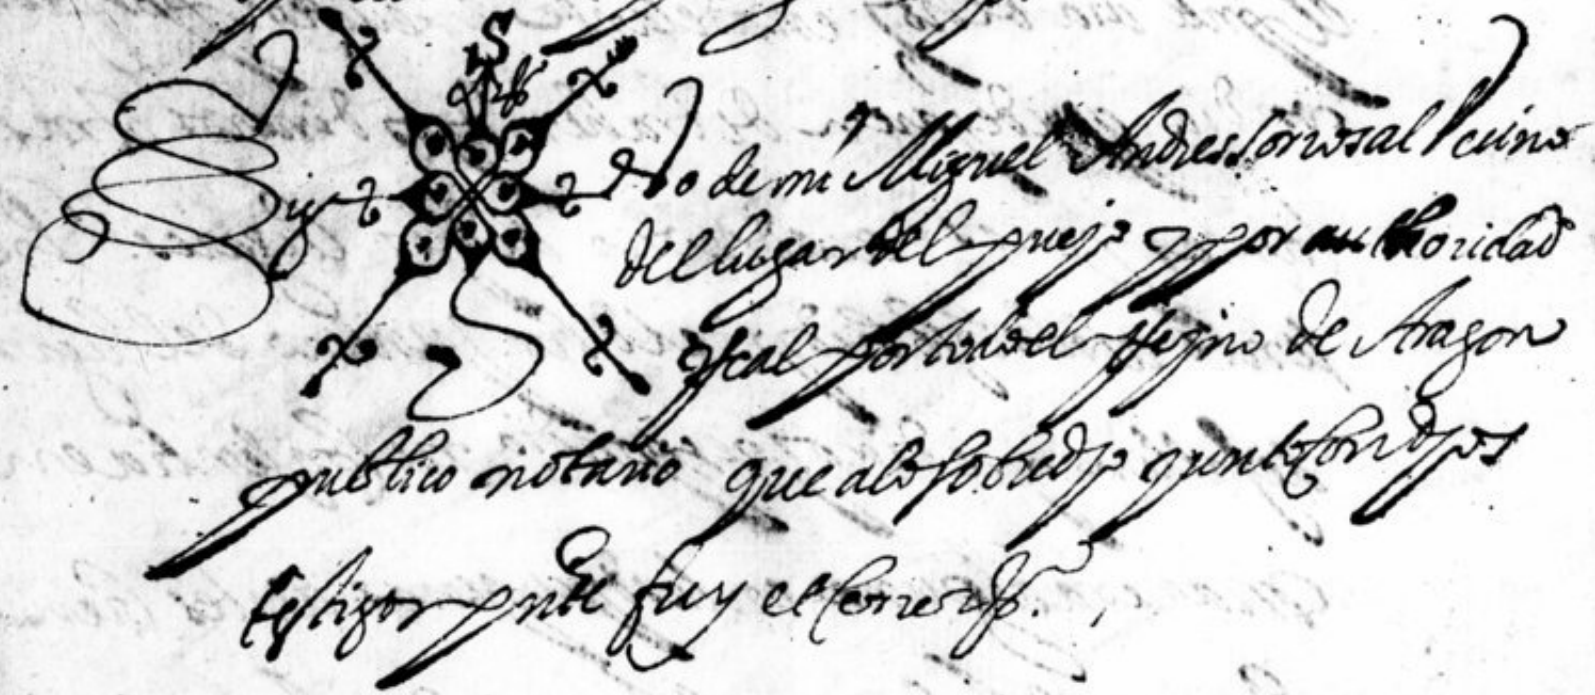 Sig no de mi Miguel Andres vecino
del lugar del pueyo y por authoridad
Real por todo el Reyno de Aragon
publico notario que a lo sobredjo junto con djos
testigos pnte fuy et cerre